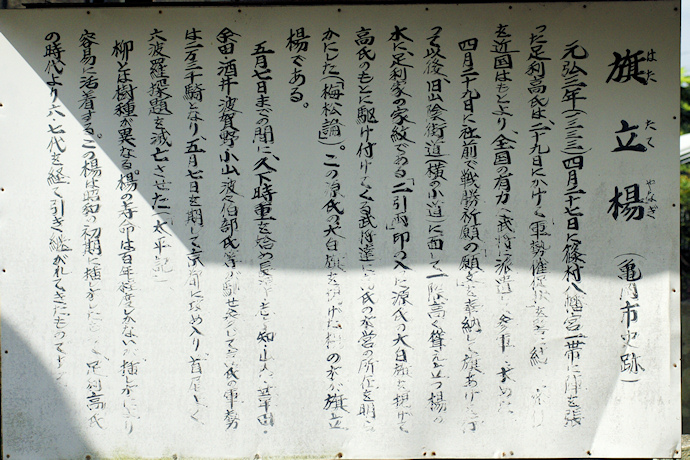 旗立楊（亀岡市史跡）
はた たて やなぎ
元弘三年（一三三三）四月二十七日に篠村八幡宮一帯に陣を張
った足利高氏は、二十九日にかけて軍勢催促状を
を近国はもとより、全国の有力な武将に派遣し
四月二十九日に社前で戦勝祈願の願文を奉納して旗あげを
って以後、旧山陰街道横の小道に面して一際高く聳え立つ楊の
木に、足利家の家紋である「二引両」印の入った源氏の大白旗を掲げて
高氏のもとに駆け付けてくる武将達に高氏の本営の所在を明ら
かにした（「梅松論」）。この源氏の大白旗を掲げた楊の木が旗立
楊である。
五月七日までの間に、久下時重を始め長澤・志宇知・山内・葦田・
余田・酒井・波賀野・小山・波々伯部氏等が馳せ参じて高氏の軍勢
は二万三千騎となり、五月七日を期して京都に攻め入り、首尾よく
六波羅探題を滅亡させた（「太平記」）
柳とは樹種が異なる。楊の寿命は百年程度しかないが、挿し木により
容易に活着する。この楊は昭和の初期に挿し木したもので、足利高氏
の時代より六・七代を経て引き継がれてきたものです。